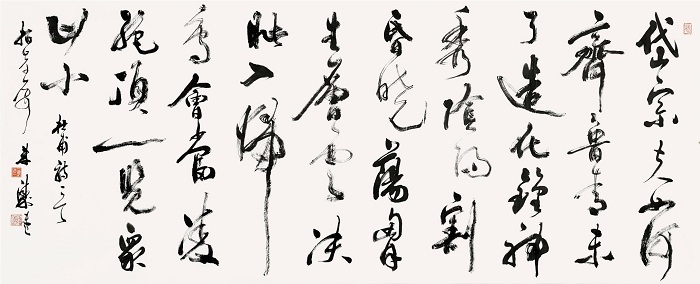 岱宗夫如何
齊魯青未
了造化鍾神
秀陰陽割
昏曉蕩胷
生層雲決
眦入歸
鳥會當凌
絕頂一覽眾
山小
杜甫詩